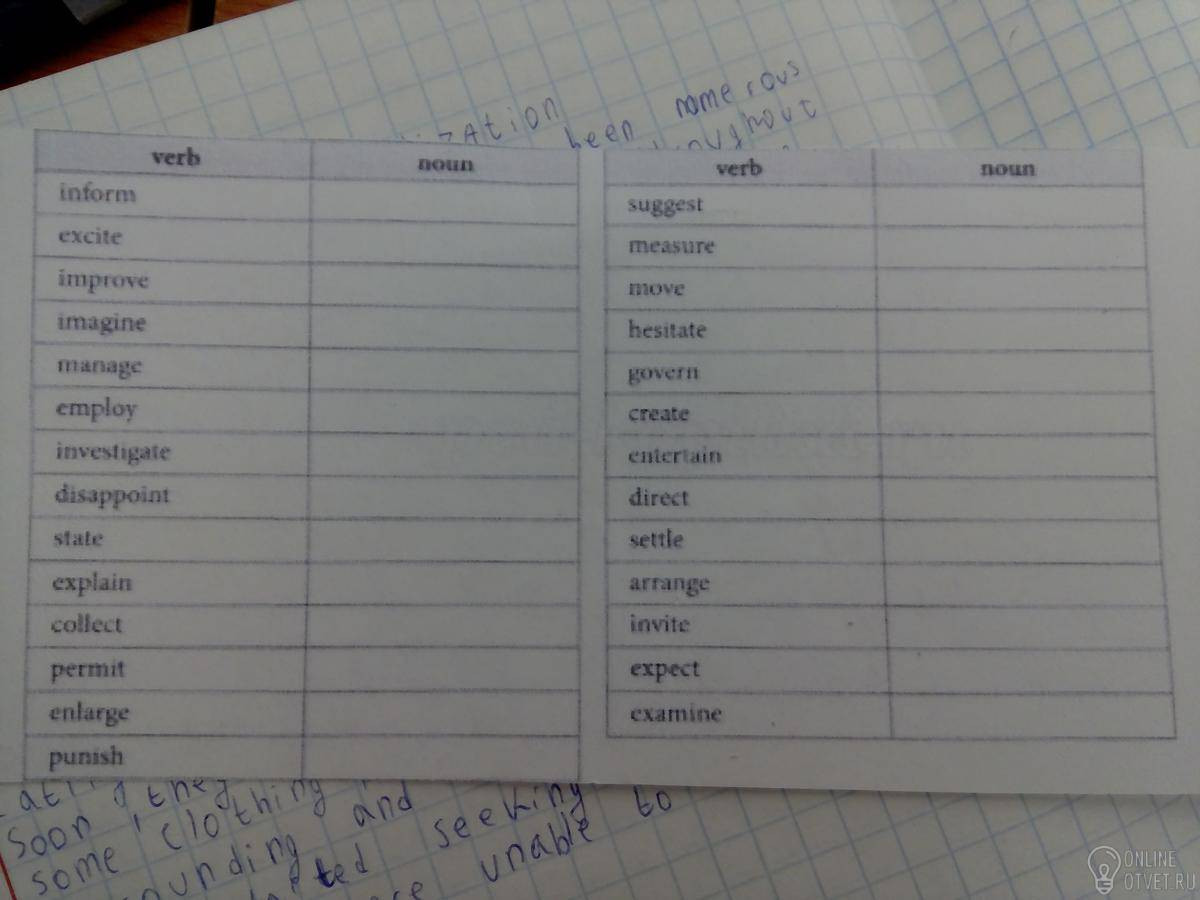 been nomerous
verb noun
inform
excite
improve
imagine
manage
employ
investigate
disappoint
state
explain
collect
permit
enlarge
punish
verb noun
suggest
measure
move
hesitate
govern
create
entertain
direct
settle
arrange
invite
expect
examine
soon they
some clothing and seeking
unable to
ONLINE
OTVET.RU